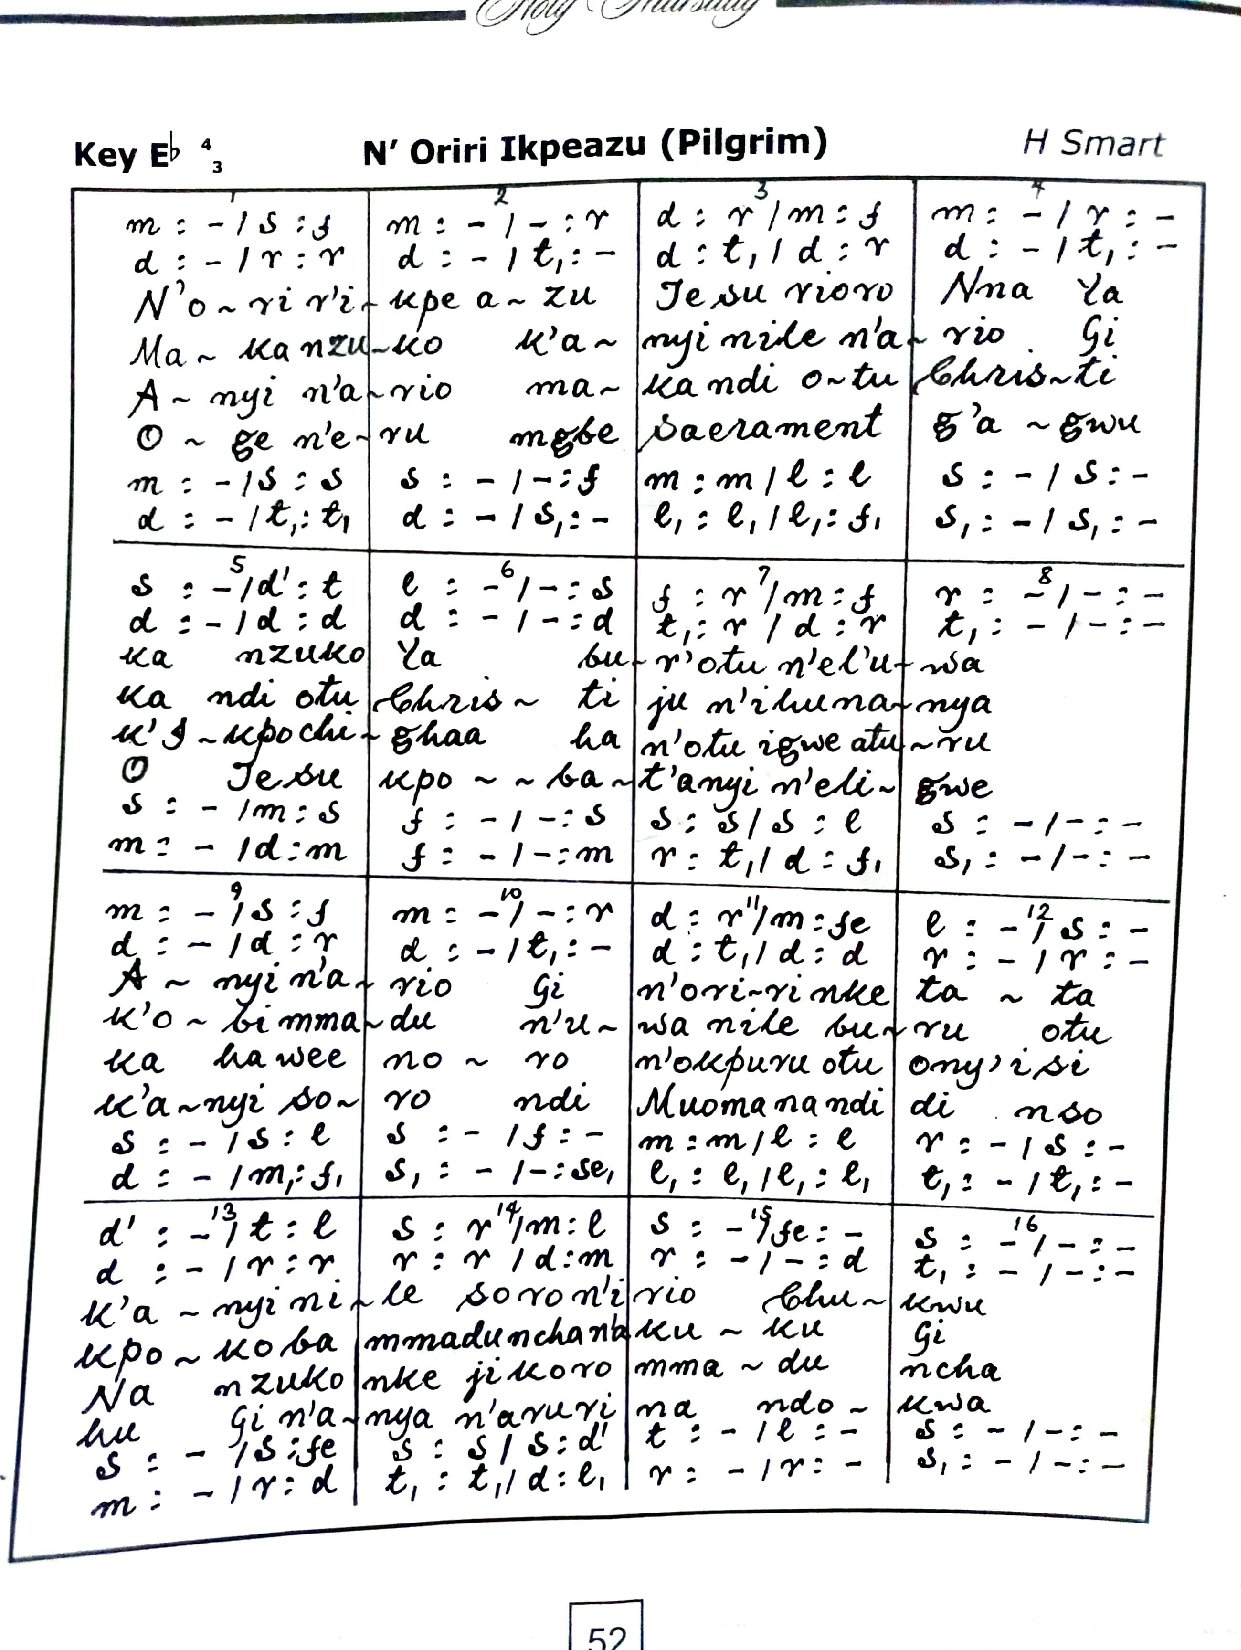 Holy Thursday
Key E♭ 4 3 N' Oriri Ikpeazu (Pilgrim) H Smart
1 2 3 4
m : - / s : f m : - / - : r d : r / m : f m : - / r : -
d : - / r : r d : - / t, : - d : t, / d : r d : - / t, : -
N'o ~ ri r'i - kpe a ~ zu Je su rioro Nna Ya
Ma ~ ka nzu - ko k'a ~ nyi nile n'a ~ rio Gi
A ~ nyi n'a ~ rio ma ~ ka ndi o ~ tu Chris ~ ti
O ~ ge n'e ~ ru mgbe sacrament g'a ~ gwu
m : - / s : s s : - / - : f m : m / l : l s : - / s : -
d : - / t, : t, d : - / s, : - l, : l, / l, : f, s, : - / s, : -
5 6 7 8
s : - / d' : t l : - / - : s f : r / m : f r : - / - : -
d : - / d : d d : - / - : d t, : r / d : r t, : - / - : -
ka nzuko Ya bu - r'otu n'el'u - wa
ka ndi otu Chris ~ ti ju n'ihuna - nya
k'I ~ kpochi - ghaa ha n'otu igwe atu ~ ru
O Jesu kpo ~ ~ ba - t'anyi n'eli ~ gwe
s : - / m : s f : - / - : s s : s / s : l s : - / - : -
m : - / d : m f : - / - : m r : t, / d : f, s, : - / - : -
9 10 11 12
m : - / s : f m : - / - : r d : r / m : fe l : - / s : -
d : - / d : r d : - / t, : - d : t, / d : d r : - / r : -
A ~ nyi n'a - rio Gi n'ori - ri nke ta ~ ta
k'o ~ bi mma - du n'u ~ wa nile bu - ru otu
ka ha wee no ~ ro n'okpuru otu ony'isi
k'a ~ nyi so ~ ro ndi Muomanandi di nso
s : - / s : l s : - / f : - m : m / l : l r : - / s : -
d : - / m, : f, s, : - / - : se, l, : l, / l, : l, t, : - / t, : -
13 14 15 16
d' : - / t : l s : r / m : l s : - / fe : - s : - / - : -
d : - / r : r r : r / d : m r : - / - : d t, : - / - : -
k'a ~ nyi ni ~ le soro n'i rio Chu ~ kwu
kpo ~ koba mmadu ncha n'a ku ~ ku Gi
Na nzuko nke jikoro mma ~ du ncha
hu Gi n'a ~ nya n'aruri na ndo ~ kwa
s : - / s : fe s : s / s : d' t : - / l : - s : - / - : -
m : - / r : d t, : t, / d : l, r : - / r : - s, : - / - : -
52